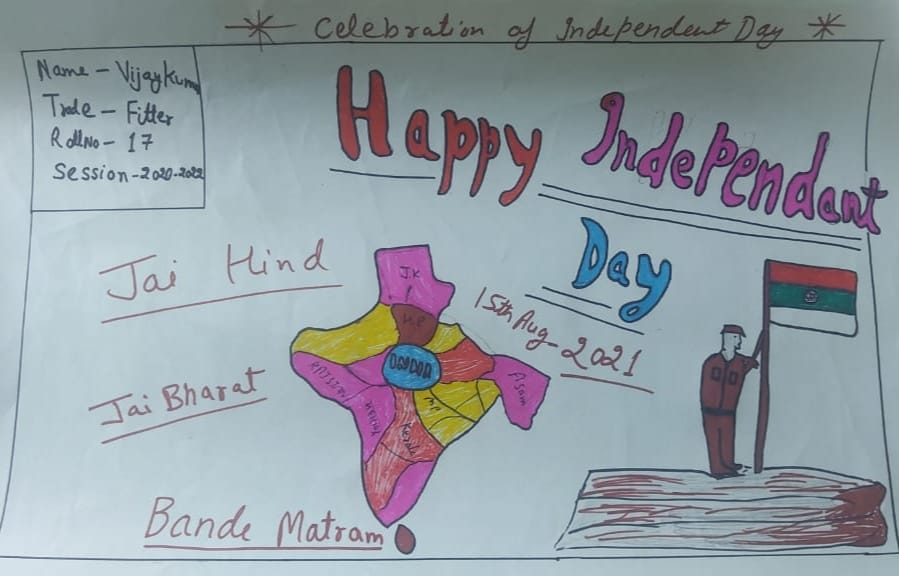 Celebration of Independent Day
Name - Vijay Kumar
Trade - Fitter
Roll No - 17
Session - 2020-2022
Happy Independant
Day
Jai Hind
15th Aug - 2021
Jai Bharat
Bande Matram
J.K
H.P
Asam
MP
Kerala